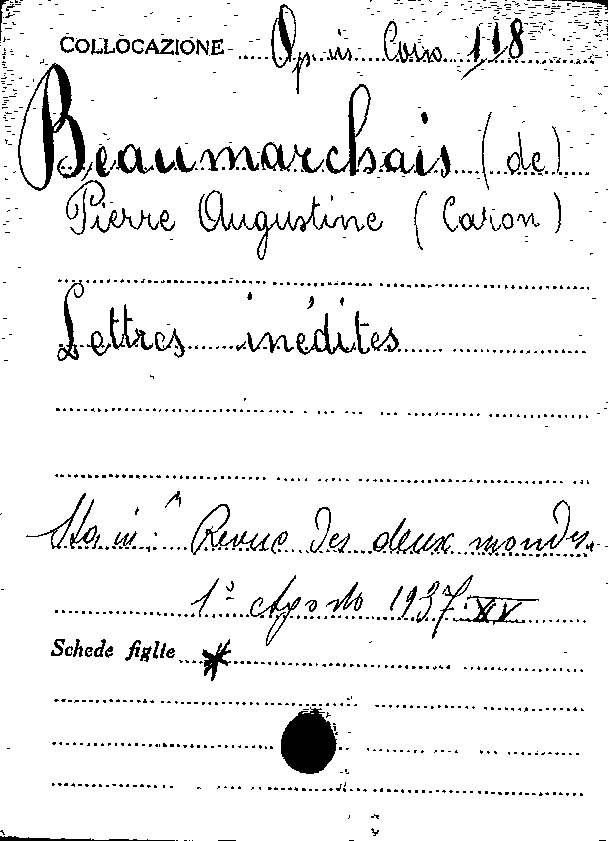 COLLOCAZIONE Op in Coro 118
Beaumarchais (de)
Pierre Augustine (Caron)
Lettres inédites
Sta in: "Revue des deux mondes.
1º Agosto 1937 XV
Schede figlie *